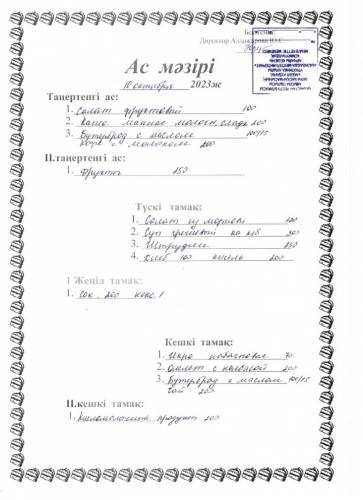 Директор
Ас мәзірі
10 октября 2023ж
Таңертенгі ас:
1. Салат фруктовый 100
2. Каша манная молочн. сладк 200
3. Бутерброд с маслом 100/15
с молоком 200
II.таңертенгі ас:
1. Фрукты 250
Түскі тамақ:
1. Салат из моркови 100
2. Суп на к/б 300
3. Штрудли 250
4. Хлеб 100 кисель 200
1 Жеңіл тамақ:
1. Сок 200 кекс 1
Кешкі тамақ:
1. Икра кабачковая 70
2. Омлет с колбасой 200
3. Бутерброд с маслом 100/15
чай 200
II.кешкі тамақ:
1. Кисломолочный продукт 200